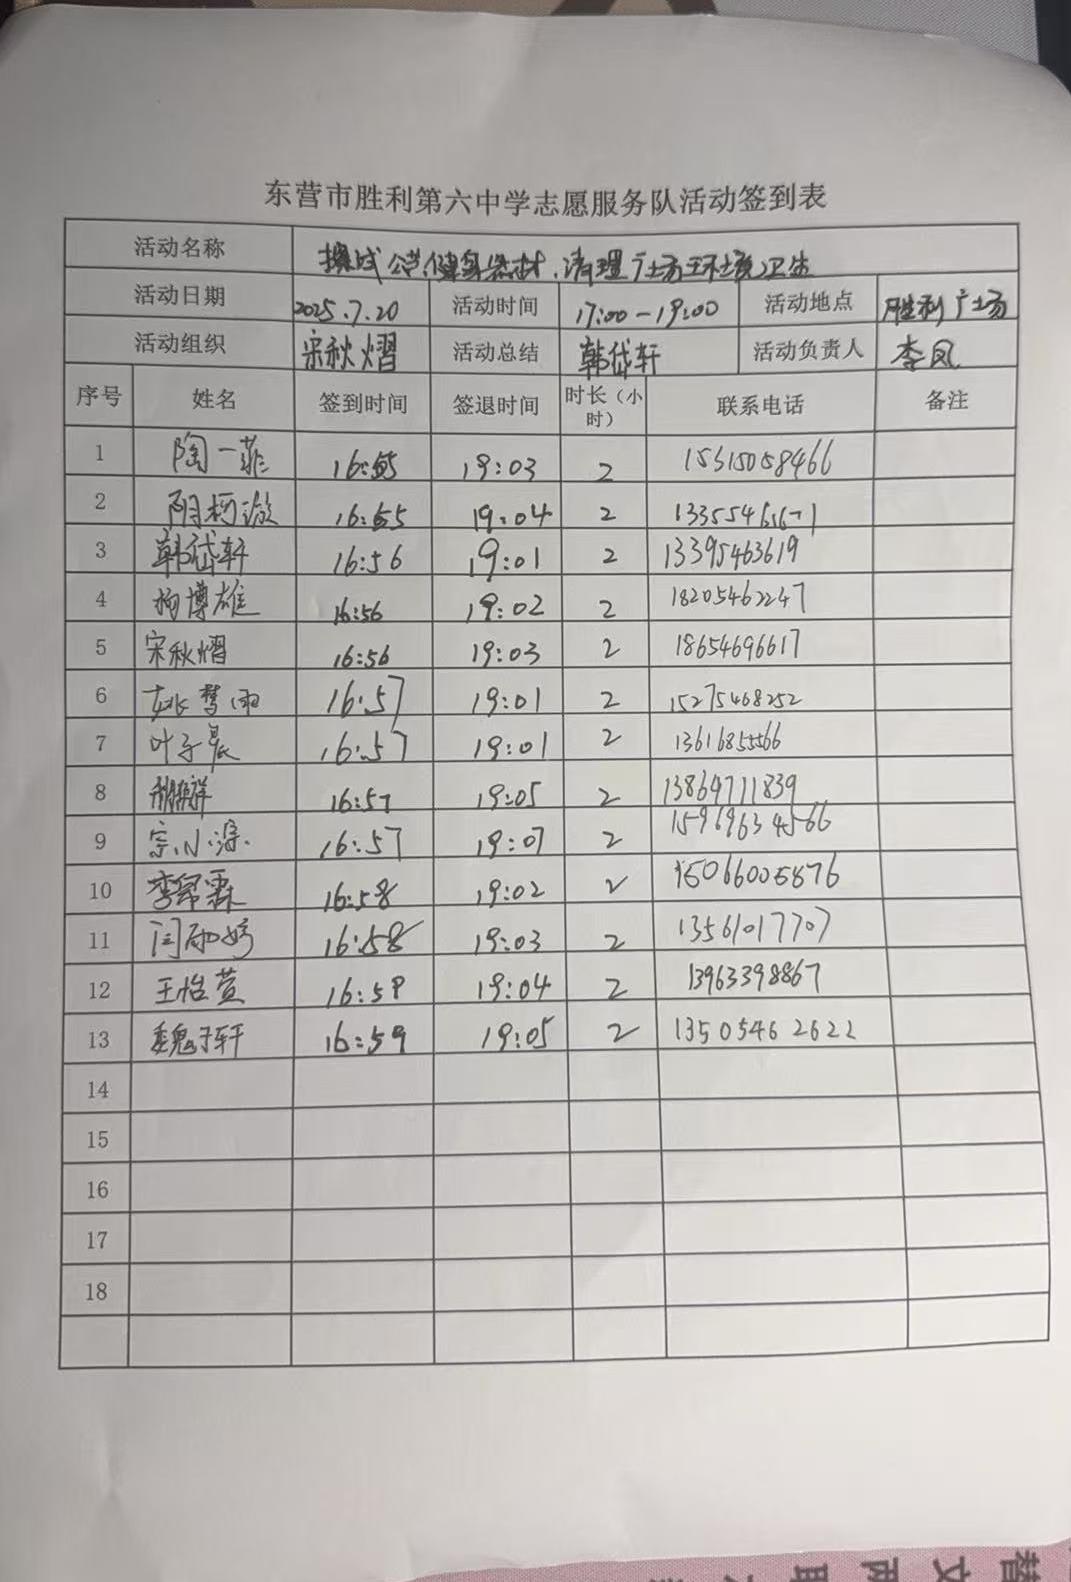 东营市胜利第六中学志愿服务队活动签到表
活动名称 擦拭公共健身器材、清理广场环境卫生
活动日期 2025.7.20 活动时间 17:00-19:00 活动地点 胜利广场
活动组织 宋秋熠 活动总结 韩岱轩 活动负责人 李凤
序号 姓名 签到时间 签退时间 时长（小时） 联系电话 备注
1 陶一菲 16:55 19:03 2 15315058466
2 16:55 19:04 2
3 韩岱轩 16:56 19:01 2 13395463619
4 博雄 16:56 19:02 2 18205462247
5 宋秋熠 16:56 19:03 2 18654696617
6 姚梦雨 16:57 19:01 2 15275468252
7 叶子晨 16:57 19:01 2 13616855566
8 16:57 19:05 2 13864711839
9 宗小 16:57 19:07 2 15969634566
10 李 霖 16:58 19:02 2 15066005876
11 闫 婷 16:58 19:03 2 13561017707
12 王怡萱 16:59 19:04 2 13963398867
13 魏子轩 16:59 19:05 2 13505462622
14
15
16
17
18